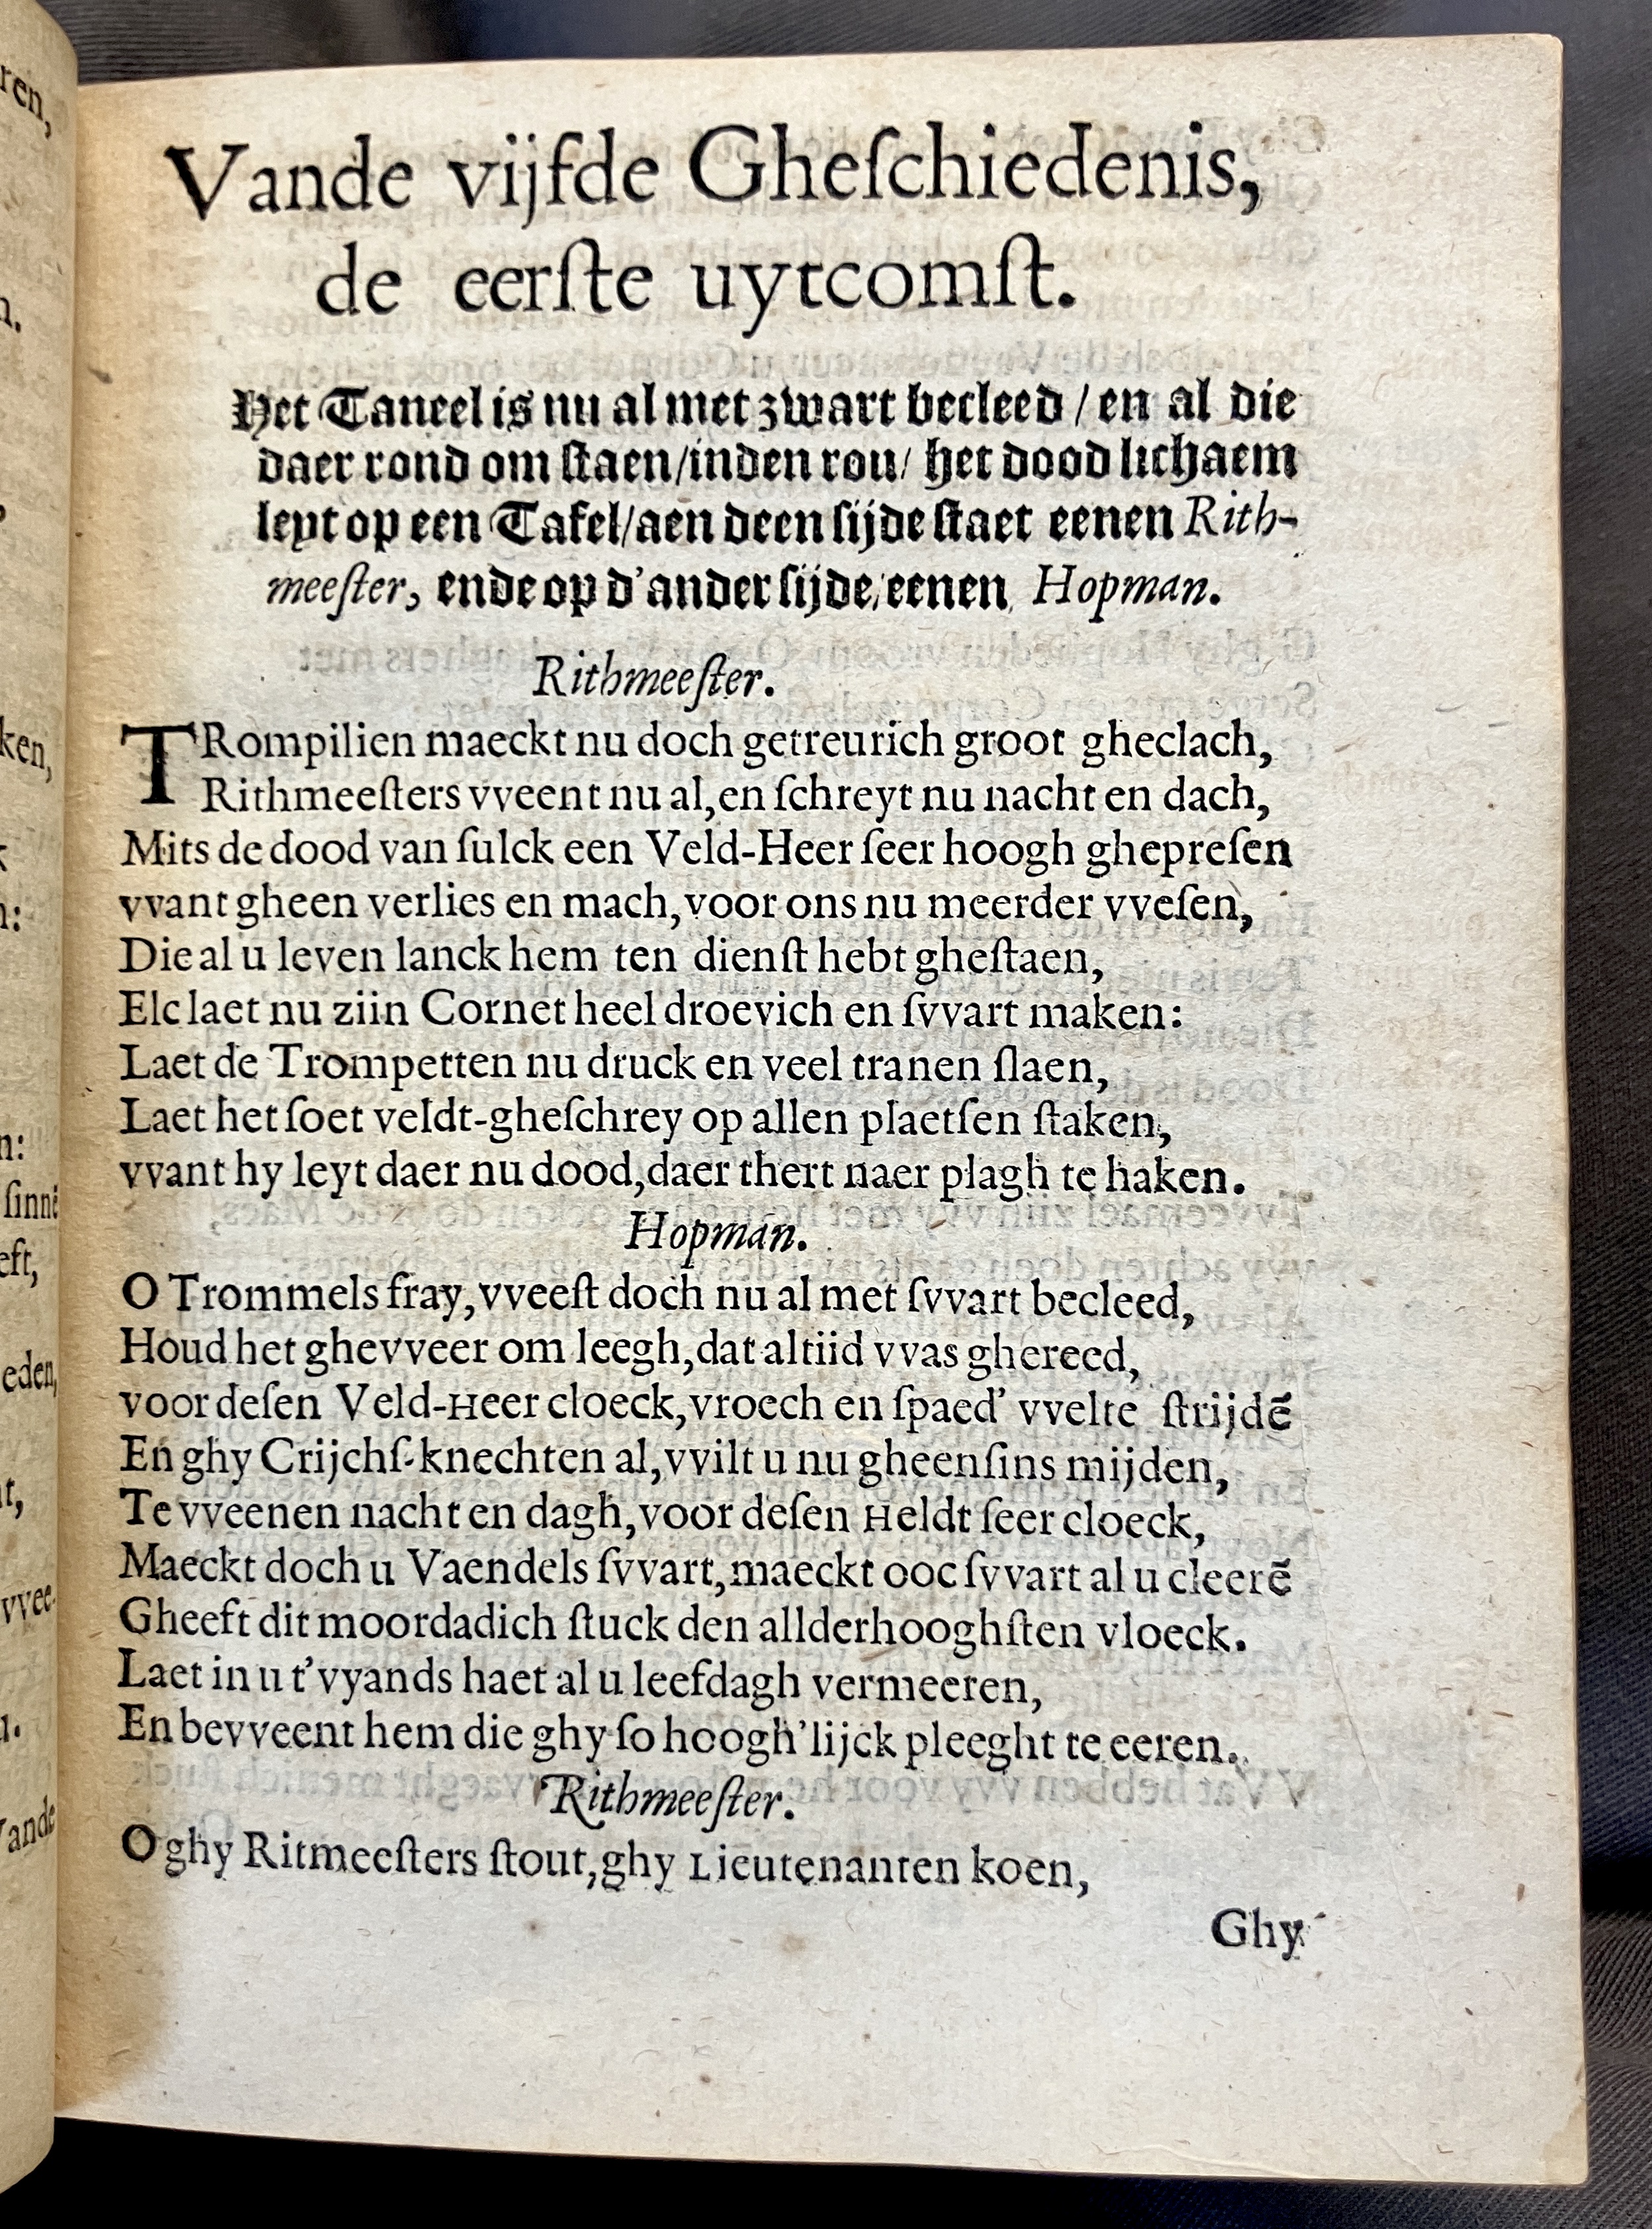 Vande vijfde Gheſchiedenis,
de eerſte uytcomſt.
Het Taneel is nu al met zwart becleed / en al die
daer rond om ſtaen/inden rou/ het dood lichaem
leyt op een Tafel/aen deen ſijde ſtaet eenen Rith-
meeſter, ende op d'ander ſijde/eenen Hopman.
Rithmeeſter.
TRompilien maeckt nu doch getreurich groot gheclach,
Rithmeeſters vveent nu al,en ſchreyt nu nacht en dach,
Mits de dood van ſulck een Veld-Heer ſeer hoogh ghepreſen
vvant gheen verlies en mach,voor ons nu meerder vveſen,
Die al u leven lanck hem ten dienſt hebt gheſtaen,
Elc laet nu ziin Cornet heel droevich en ſvvart maken:
Laet de Trompetten nu druck en veel tranen ſlaen,
Laet het ſoet veldt-gheſchrey op allen plaetſen ſtaken,
vvant hy leyt daer nu dood,daer thert naer plagh te haken.
Hopman.
O Trommels fray,vveeſt doch nu al met ſvvart becleed,
Houd het ghevveer om leegh,dat altiid vvas ghereed,
voor deſen Veld-Heer cloeck,vroech en ſpaed' vvelte ſtrijdē
En ghy Crijchſ-knechten al,vvilt u nu gheenſins mijden,
Te vveenen nacht en dagh,voor deſen Heldt ſeer cloeck,
Maeckt doch u Vaendels ſvvart,maeckt ooc ſvvart al u cleerē
Gheeft dit moordadich ſtuck den allderhooghſten vloeck.
Laet in u t'vyands haet al u leefdagh vermeeren,
En bevveent hem die ghy ſo hoogh'lijck pleeght te eeren.
Rithmeeſter.
O ghy Ritmeeſters ſtout,ghy Lieutenanten koen,
Ghy